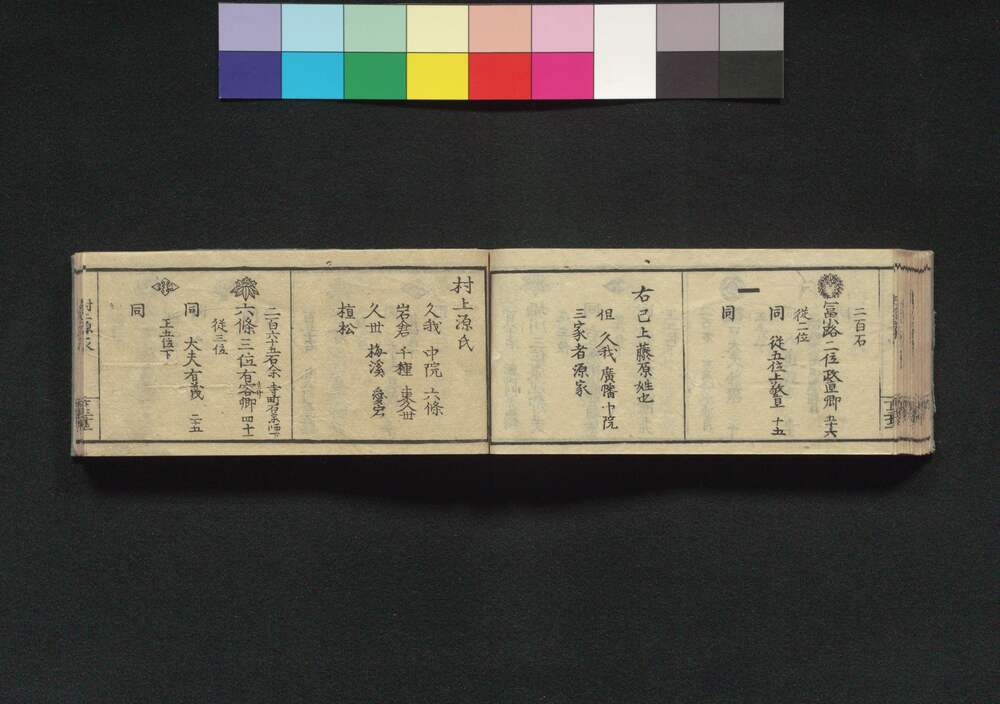 二百石
冨小路二位政直卿 五十六
従二位
同 従五位上敬直 十五
同
右已上藤原姓也
但 久我 廣幡 中院
三家者源家
村上源氏
久我 中院 六條
岩倉 千種 東久世
久世 梅溪 愛宕
植松
二百六十五石余
六條三位有容卿 四十二
従三位
同 大夫有義 二十五
正五位下
同
村上源家